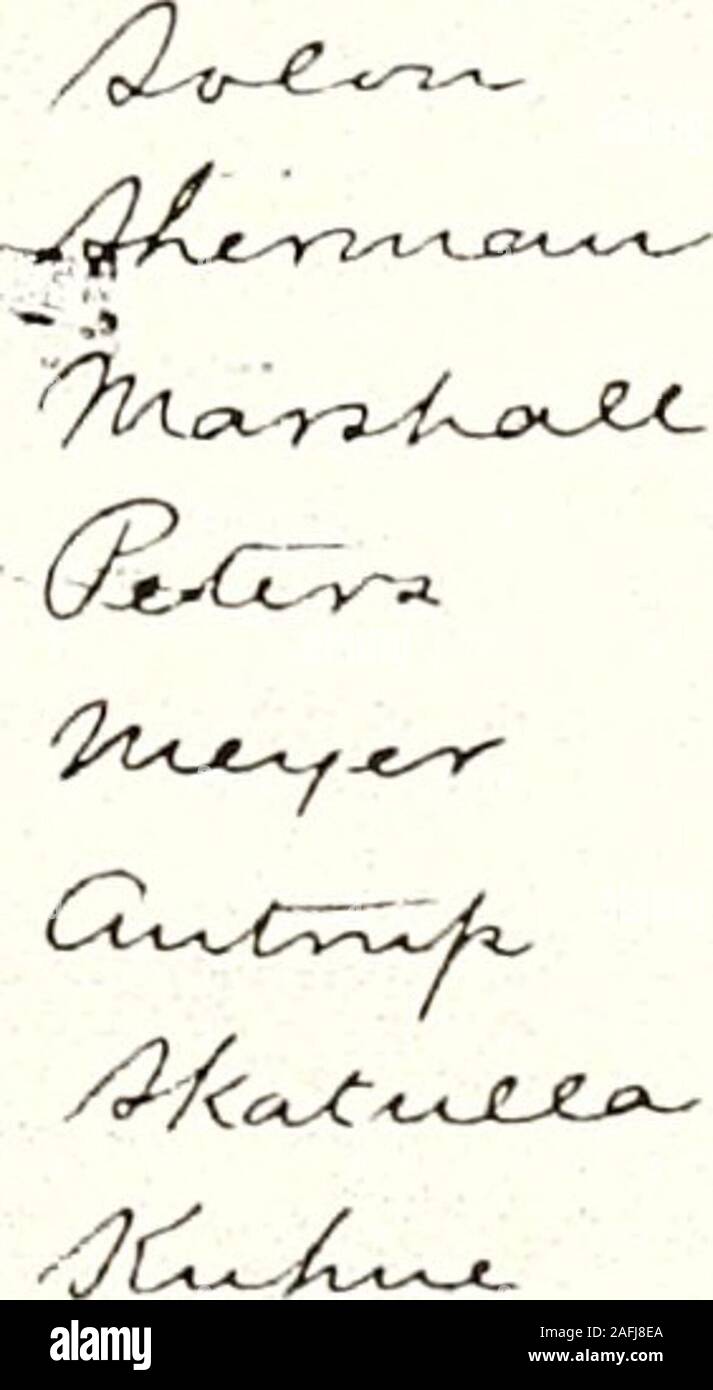 Solon
Sherman
Marshall
Peters
Meyer
Antrup
Skatulla
Kuhne
alamy
Image ID: 2AFJ8EA
www.alamy.com